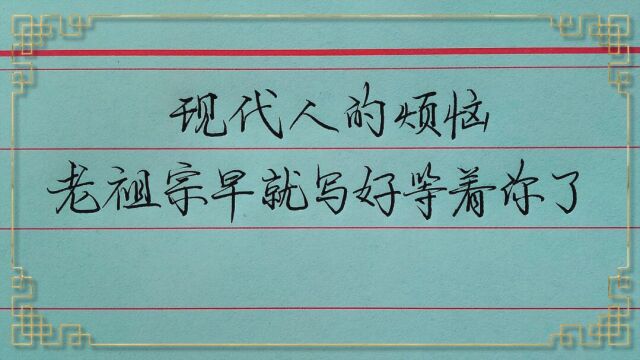 现代人的烦恼
老祖宗早就写好等着你了